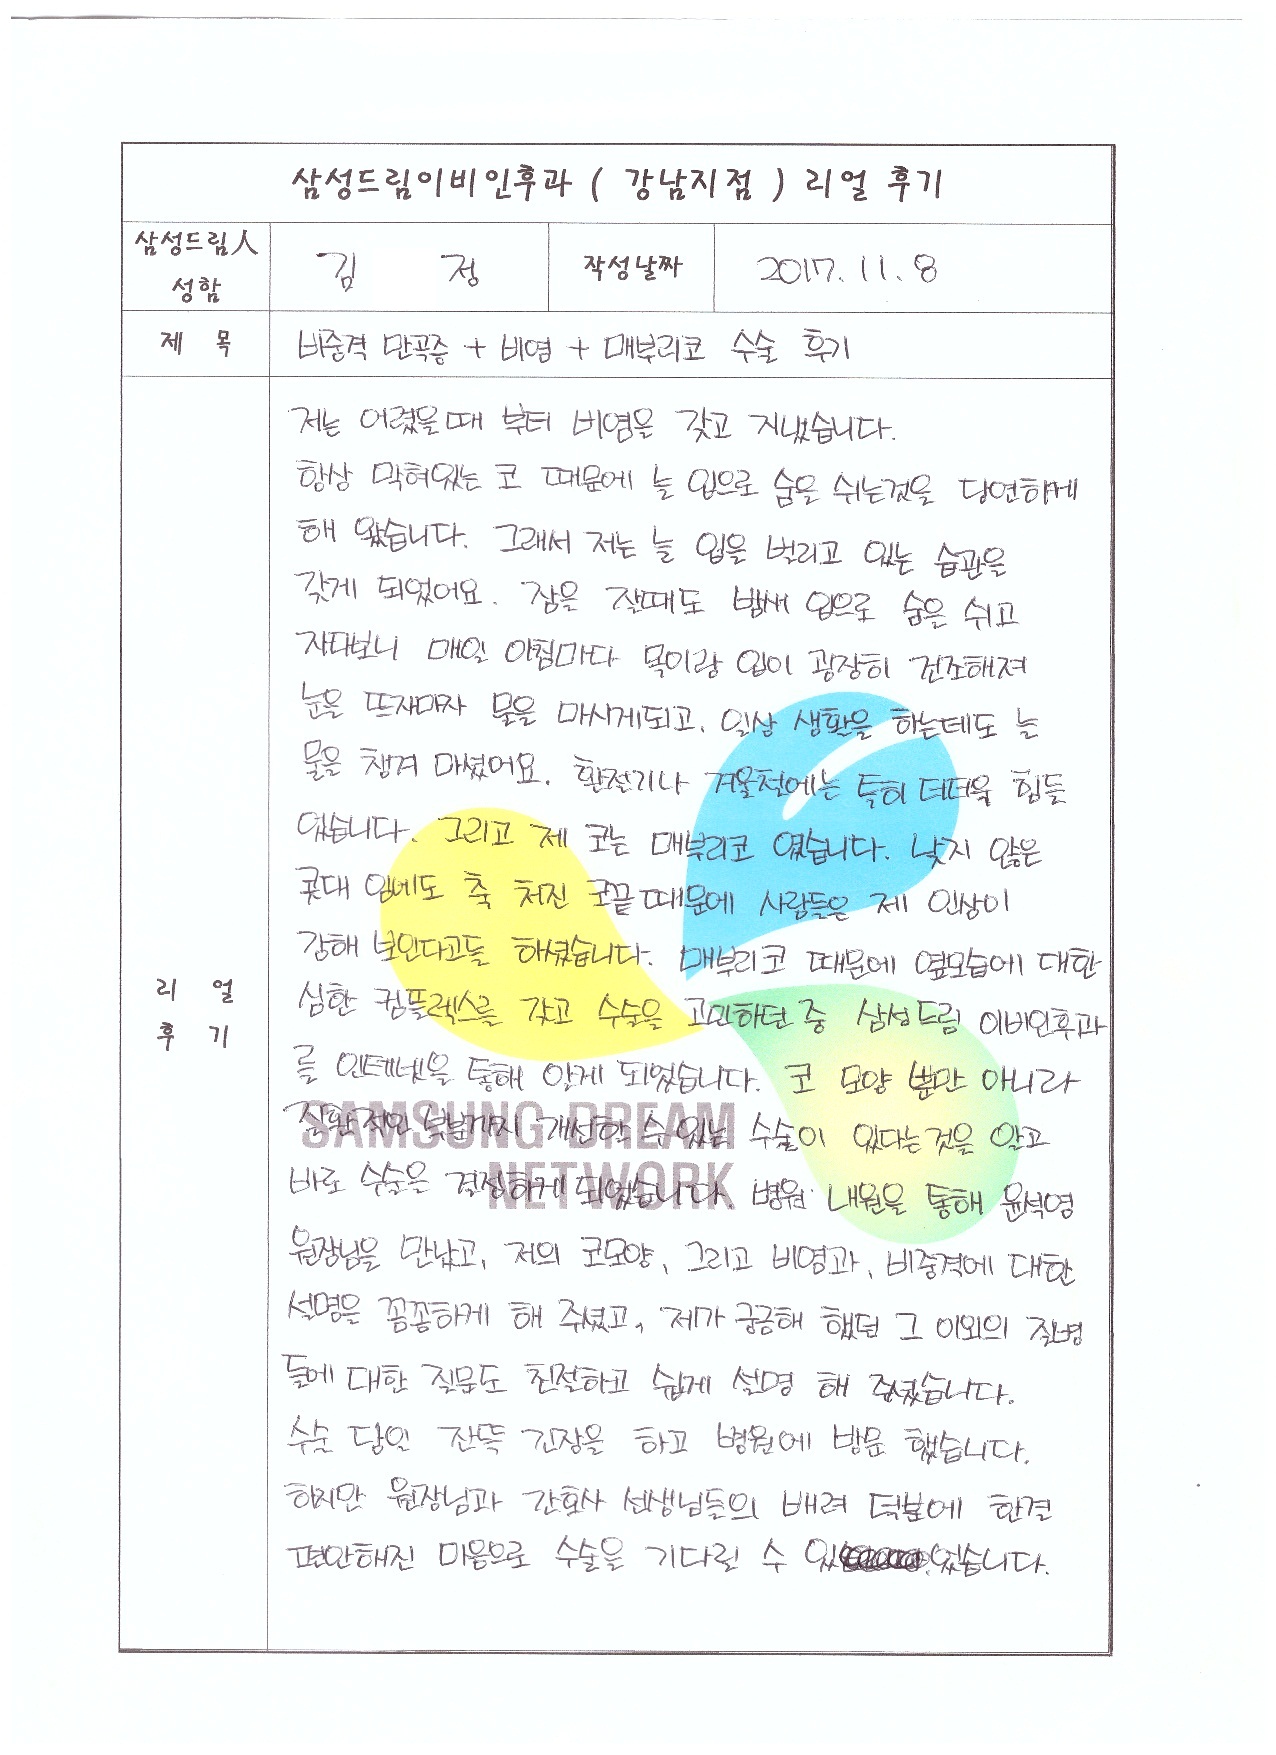 삼성드림이비인후과 ( 강남지점 ) 리얼 후기
삼성드림人 성함
김 정
작성날짜
2017. 11. 8
제 목
비중격 만곡증 + 비염 + 매부리코 수술 후기
리 얼
후 기
저는 어렸을때 부터 비염을 갖고 지냈습니다.
항상 막혀있는 코 때문에 늘 입으로 숨을 쉬는것을 당연하게
해 왔습니다. 그래서 저는 늘 입을 벌리고 있는 습관을
갖게 되었어요. 잠을 잘때도 밤새 입으로 숨을 쉬고
자다보니 매일 아침마다 목이랑 입이 굉장히 건조해져
눈을 뜨자마자 물을 마시게되고, 일상 생활을 하는데도 늘
물을 챙겨 마셨어요. 환절기나 겨울철에는 특히 더더욱 힘들
었습니다. 그리고 제 코는 매부리코 였습니다. 낮지 않은
콧대 임에도 축 처진 코끝 때문에 사람들은 제 인상이
강해 보인다고들 하셨습니다. 매부리코 때문에 옆모습에 대한
심한 컴플렉스를 갖고 수술을 고민하던 중 삼성드림 이비인후과
를 인터넷을 통해 알게 되었습니다. 코 모양 뿐만 아니라
질환적인 부분까지 개선할 수 있는 수술이 있다는것을 알고
바로 수술을 결정하게 되었습니다. 병원 내원을 통해 윤석영
원장님을 만났고, 저의 코모양, 그리고 비염과, 비중격에 대한
설명을 꼼꼼하게 해 주셨고, 제가 궁금해 했던 그 이외의 질병
들에 대한 질문도 친절하고 쉽게 설명 해 주셨습니다.
수술 당일 잔뜩 긴장을 하고 병원에 방문 했습니다.
하지만 원장님과 간호사 선생님들의 배려 덕분에 한결
편안해진 마음으로 수술을 기다릴 수 있었습니다.
SAMSUNG DREAM
NETWORK